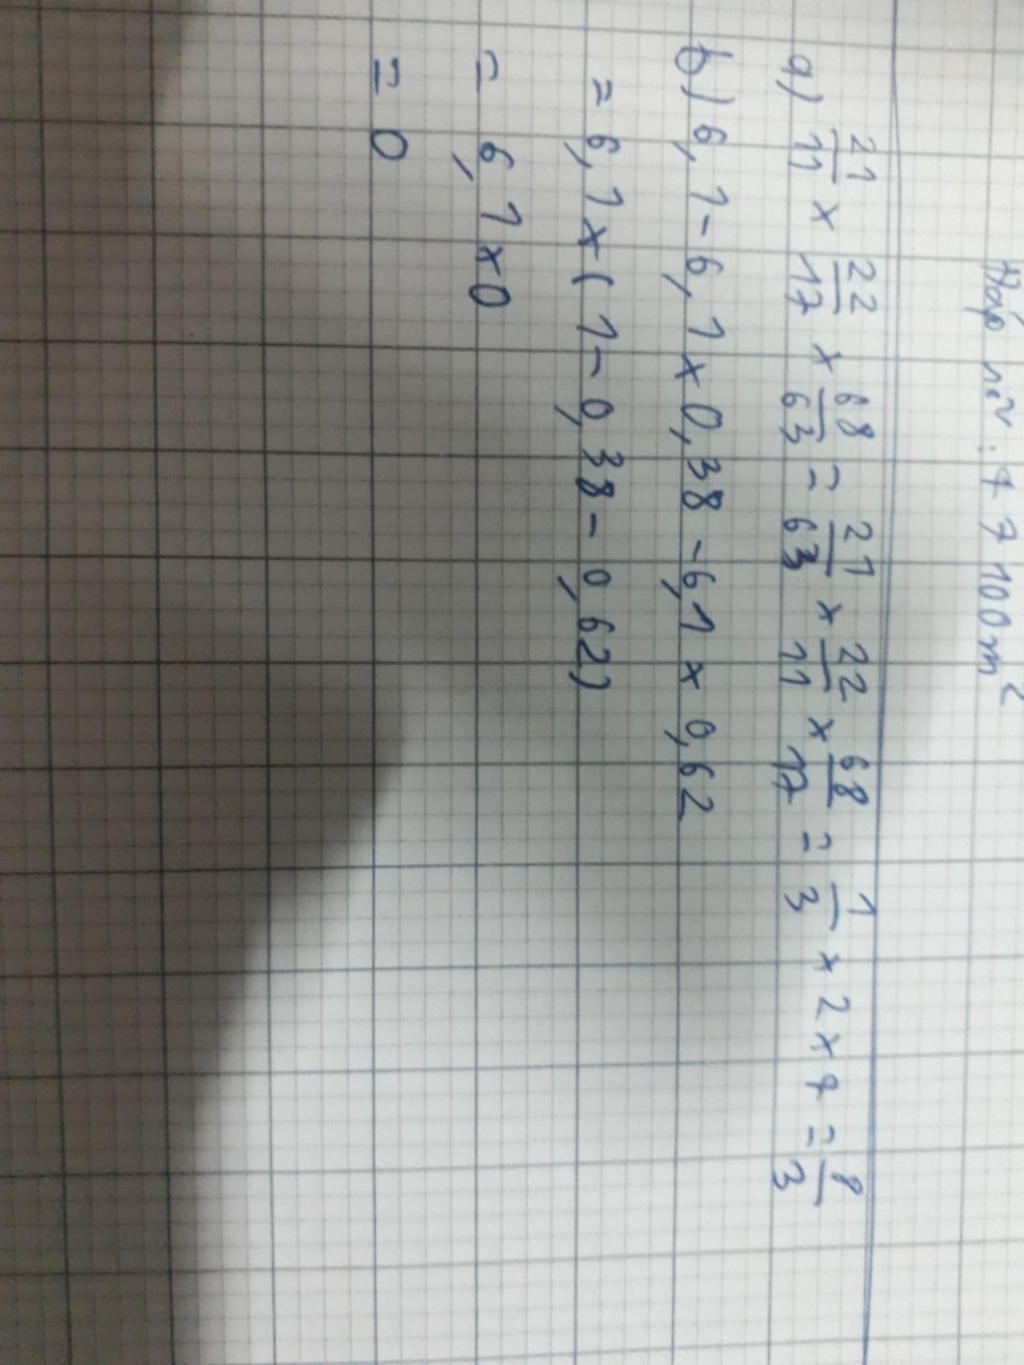 Đáp số: 47100m²
a) 21/11 × 22/17 × 68/63 = 21/63 × 22/11 × 68/17 = 1/3 × 2 × 4 = 8/3
b) 6,1 - 6,1 × 0,38 - 6,1 × 0,62
= 6,1 × (1 - 0,38 - 0,62)
= 6,1 × 0
= 0